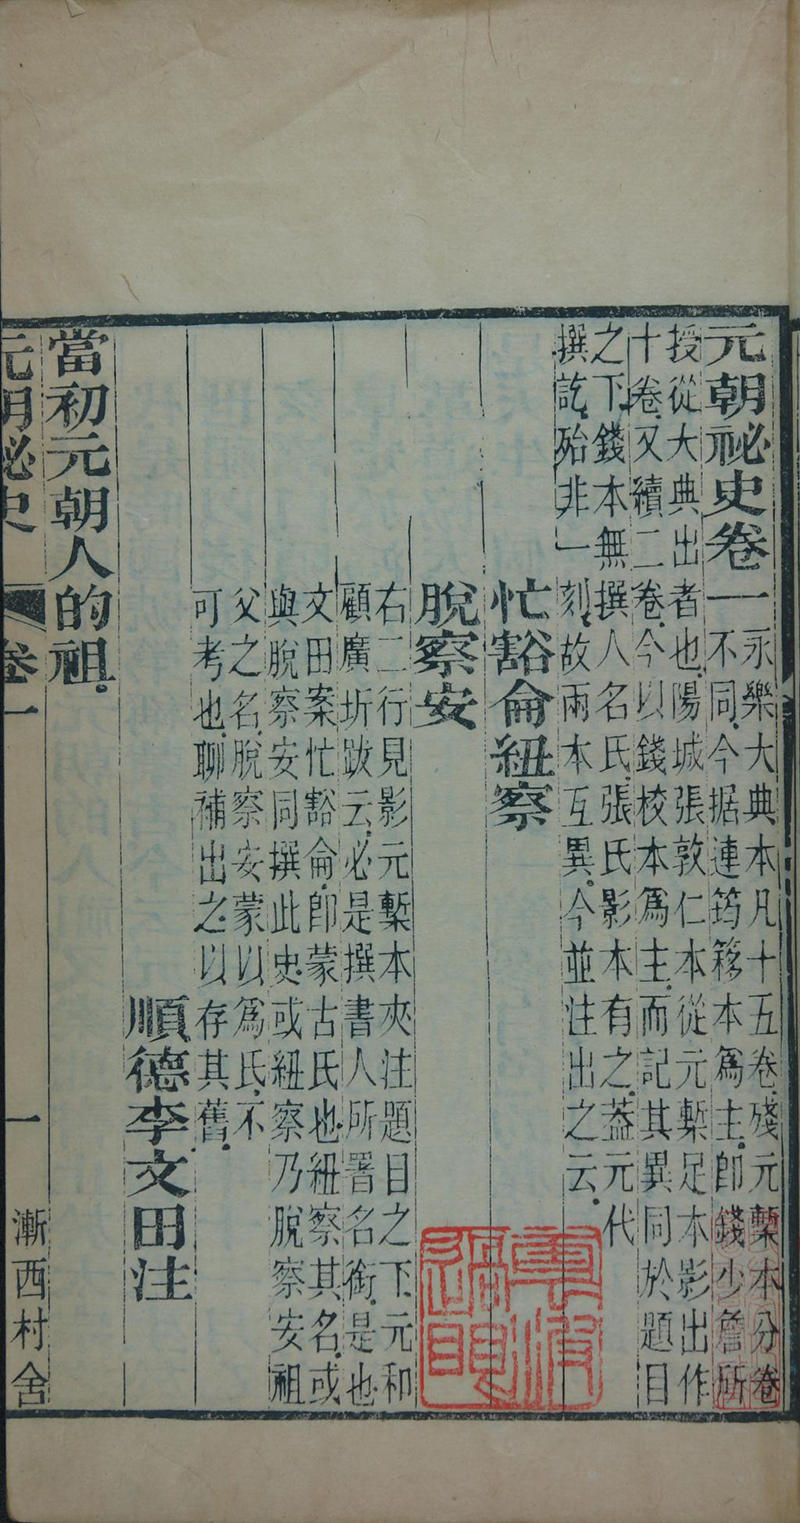 元朝祕史卷一
永樂大典本凡十五卷殘元槧本分卷
不同今据連筠簃本為主卽錢少詹所
授從大典出者也陽城張敦仁本從元槧足本影出作
十卷又續二卷今以錢校本為主而記其異同於題目
之下錢本無撰人名氏張氏影本有之葢元代
撰訖殆非一刻故兩本互異今並注出之云
忙豁侖紐察
脫察安
右二行見影元槧本夾注題目之下元和
顧廣圻跋云必是撰書人所署名銜是也
文田案忙豁侖卽蒙古氏也紐察其名或
與脫察安同撰此史或紐察乃脫察安祖
父之名脫察安蒙以為氏不
可考也聊補出之以存其舊
順德李文田注
當初元朝人的祖
元朝祕史 卷一 一 漸西村舍